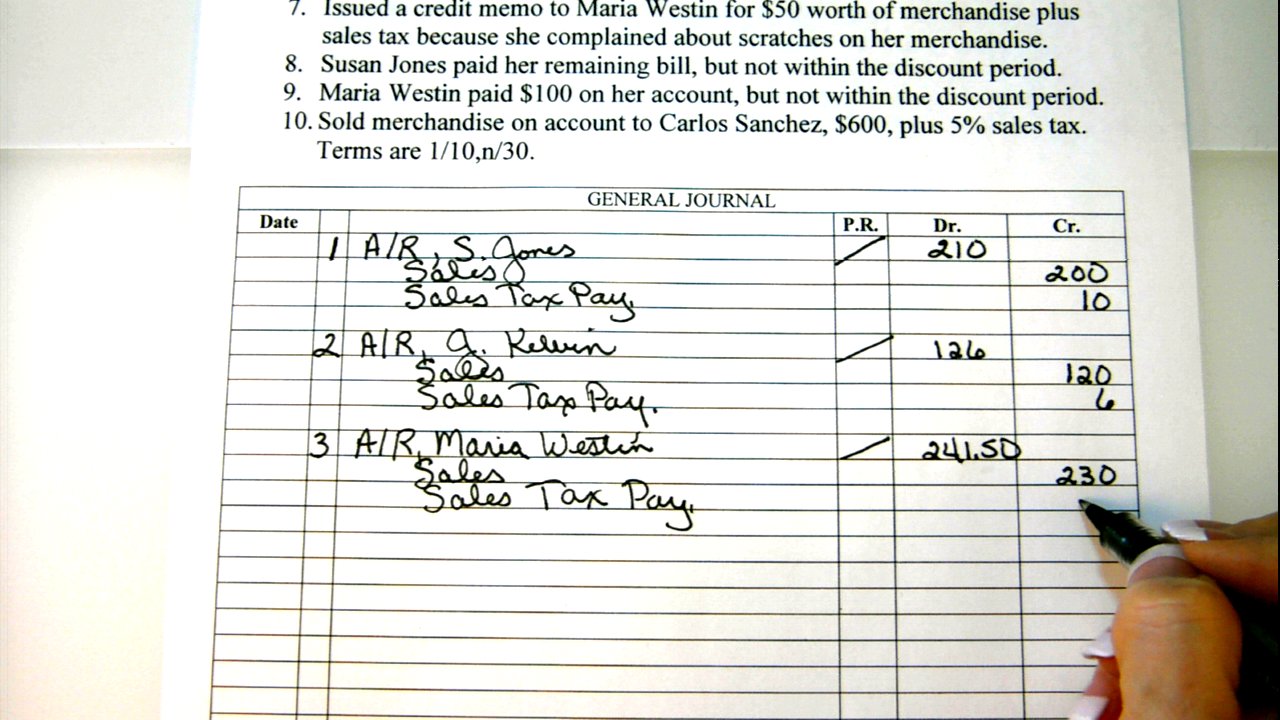 7. Issued a credit memo to Maria Westin for $50 worth of merchandise plus
sales tax because she complained about scratches on her merchandise.
8. Susan Jones paid her remaining bill, but not within the discount period.
9. Maria Westin paid $100 on her account, but not within the discount period.
10. Sold merchandise on account to Carlos Sanchez, $600, plus 5% sales tax.
Terms are 1/10,n/30.
GENERAL JOURNAL
Date P.R. Dr. Cr.
1 A/R, S. Jones 210
Sales 200
Sales Tax Pay. 10
2 A/R, J. Kelvin 126
Sales 120
Sales Tax Pay. 6
3 A/R, Maria Westin 241.50
Sales 230
Sales Tax Pay.